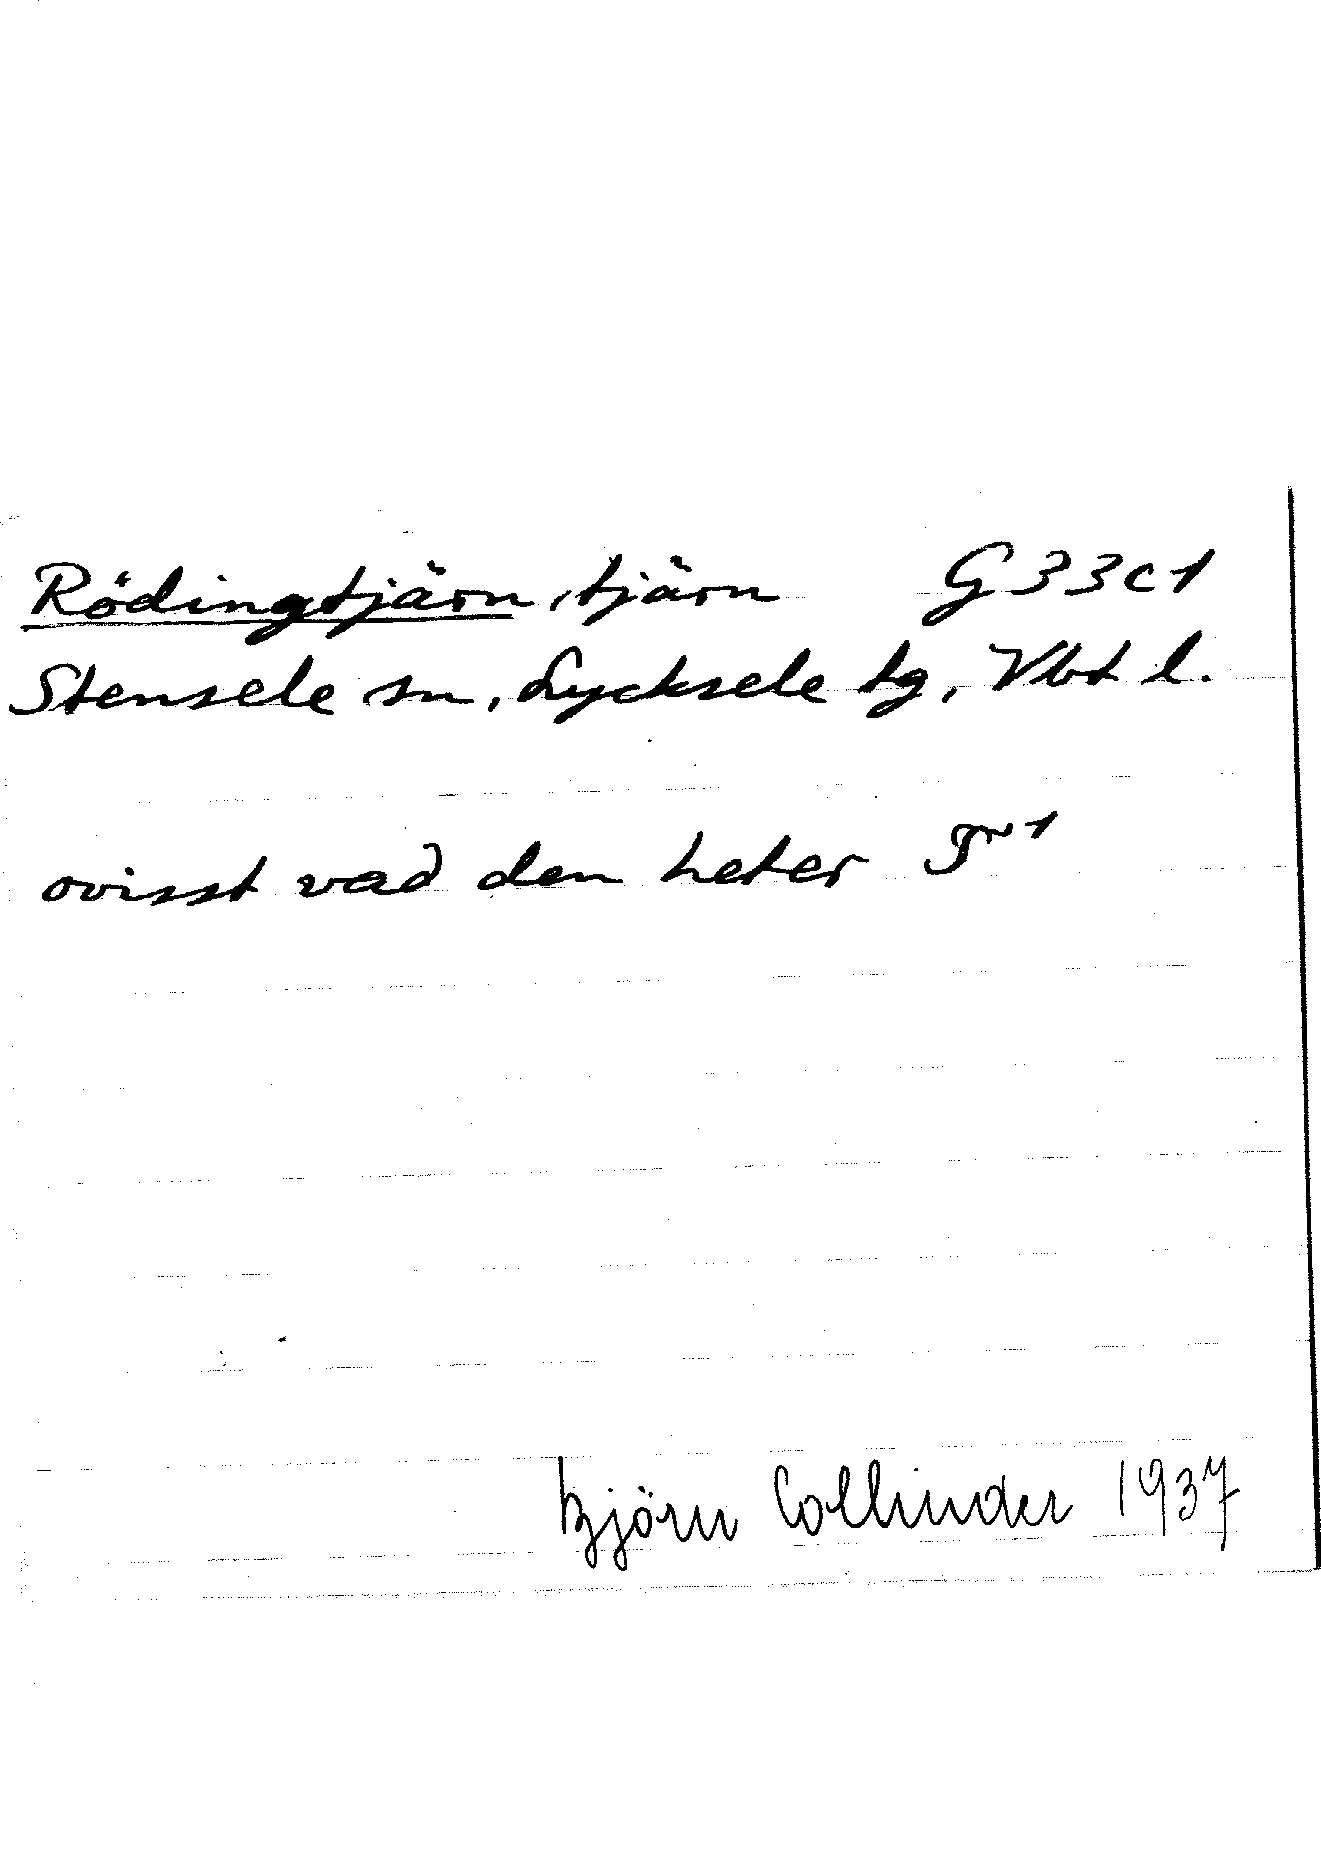 Rödingtjärn, tjärn G33c1
Stensele sn, Lycksele tg, Vbt l.
ovisst vad den heter
Björn Collinder 1937